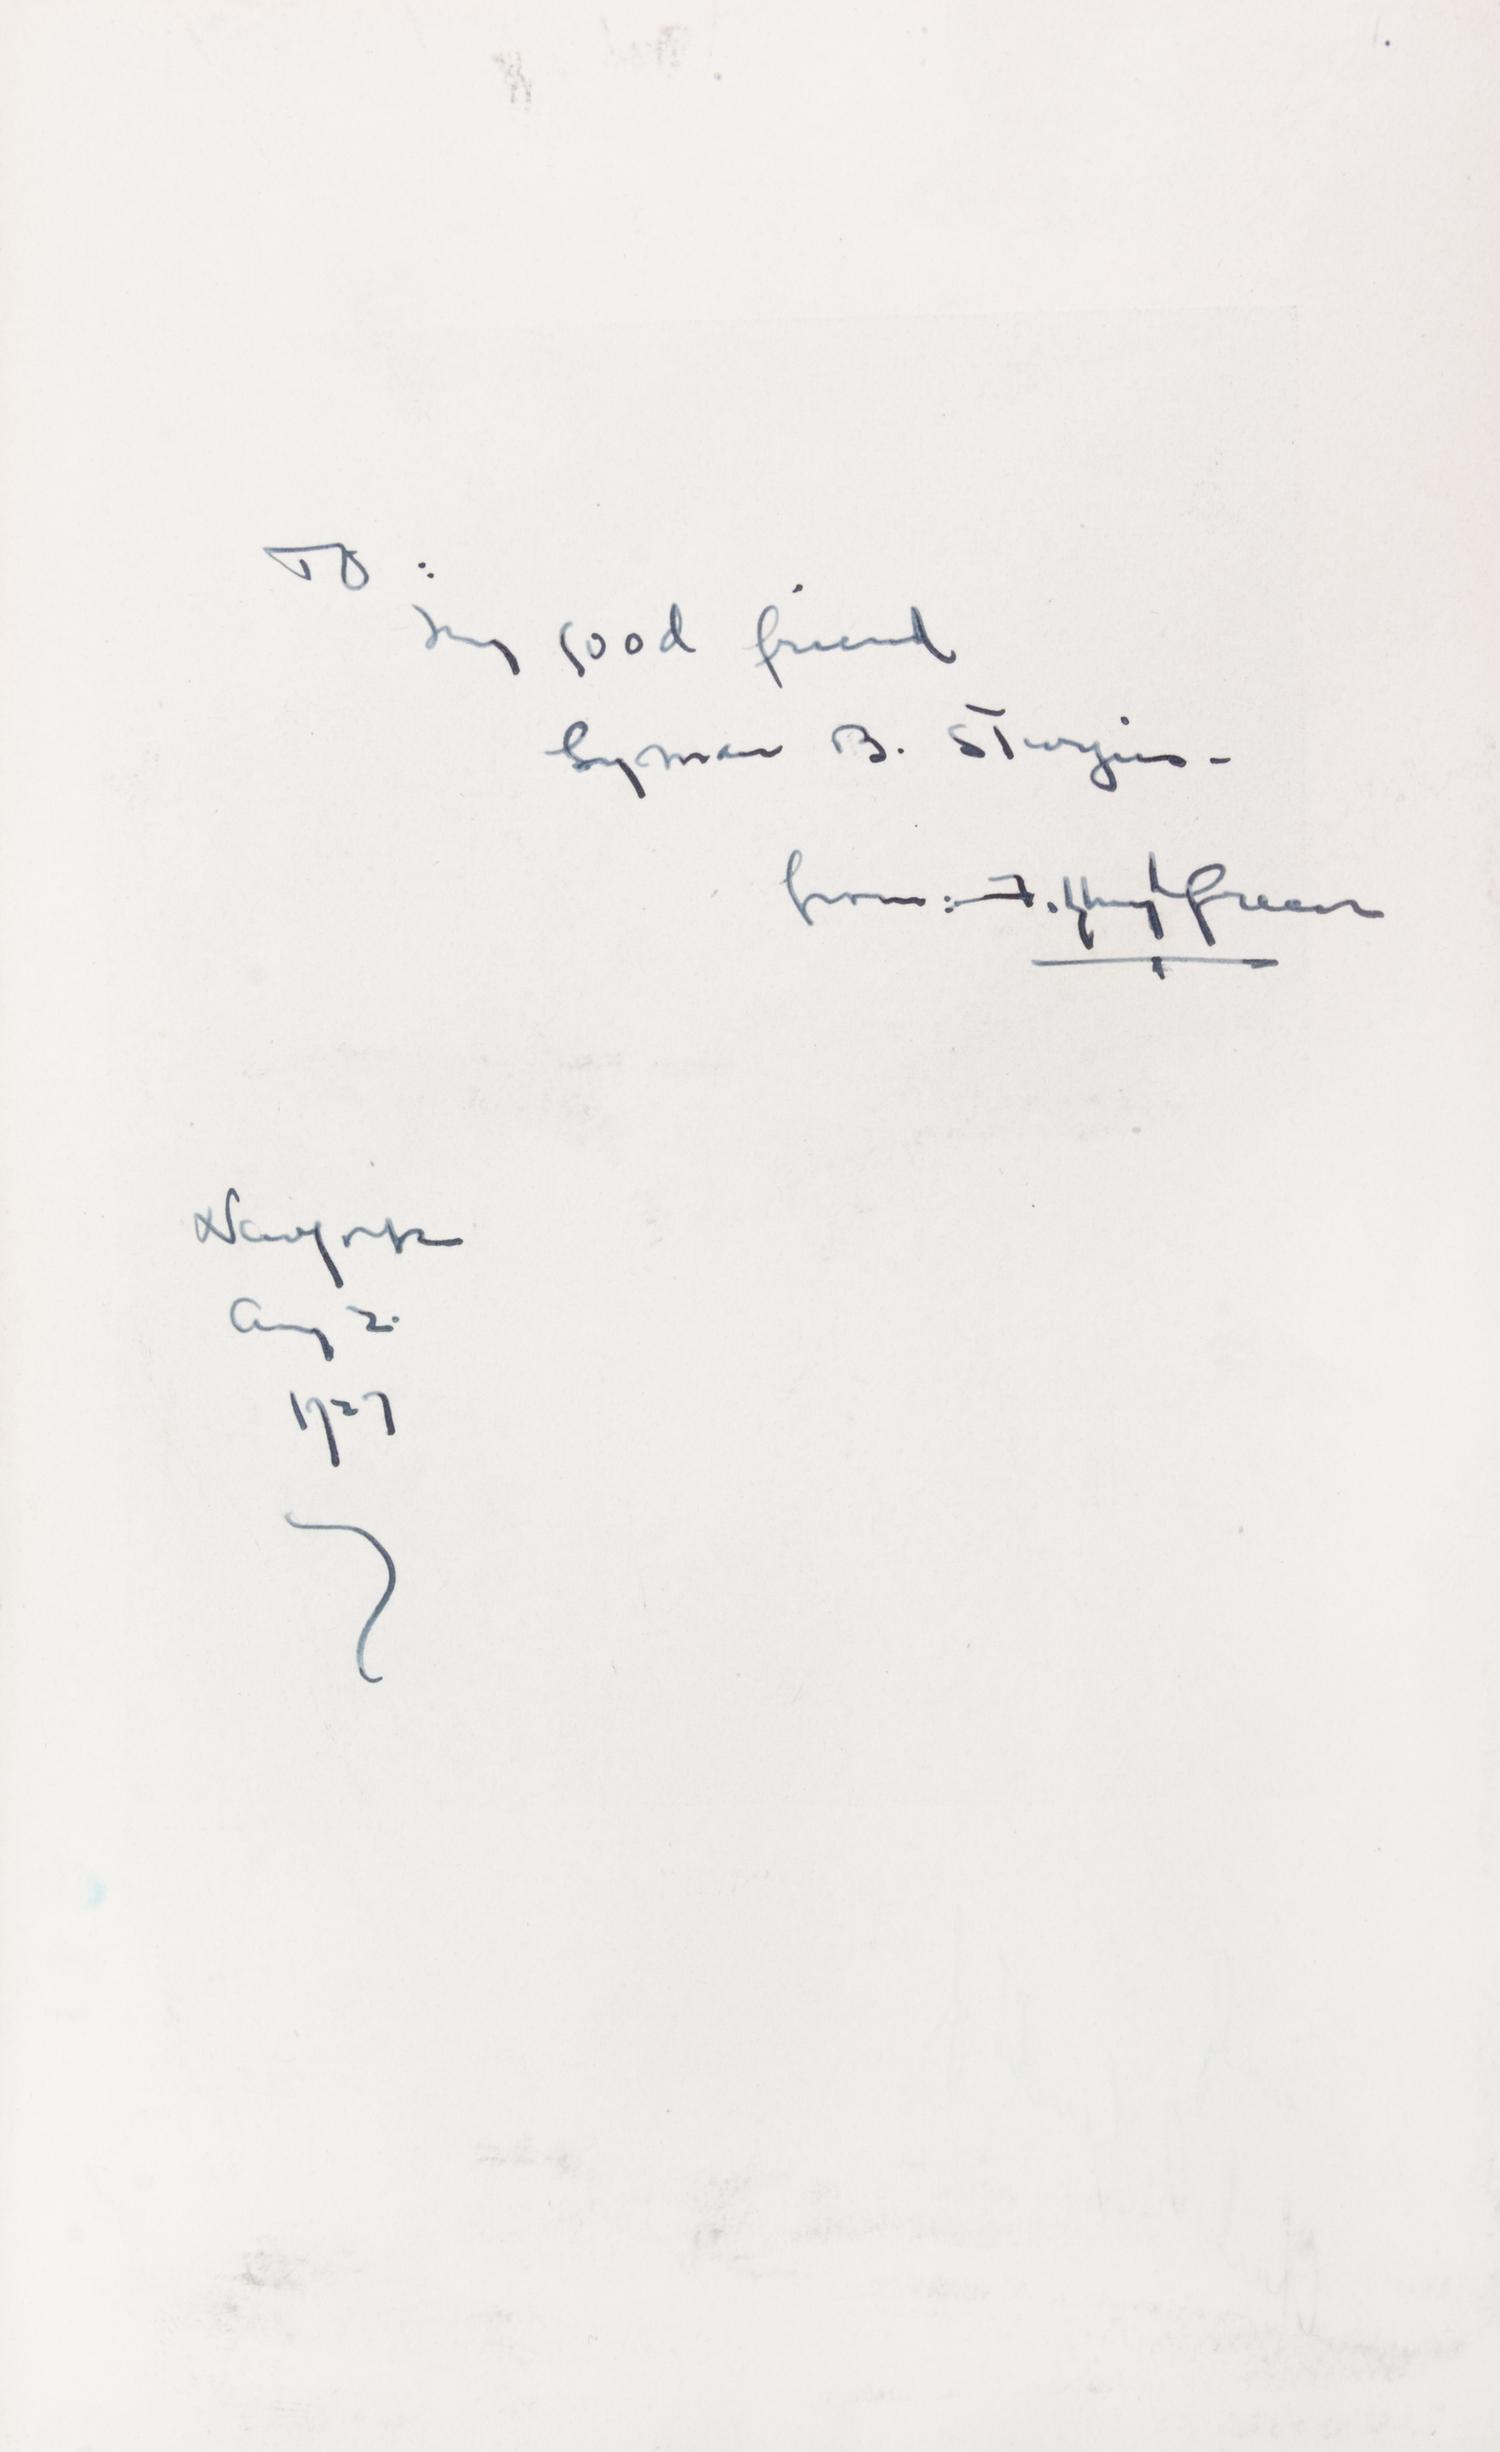 To:
My good friend
Lyman B. Sturgis-
from:- Fitzhugh Green
New York
Aug 2.
1927